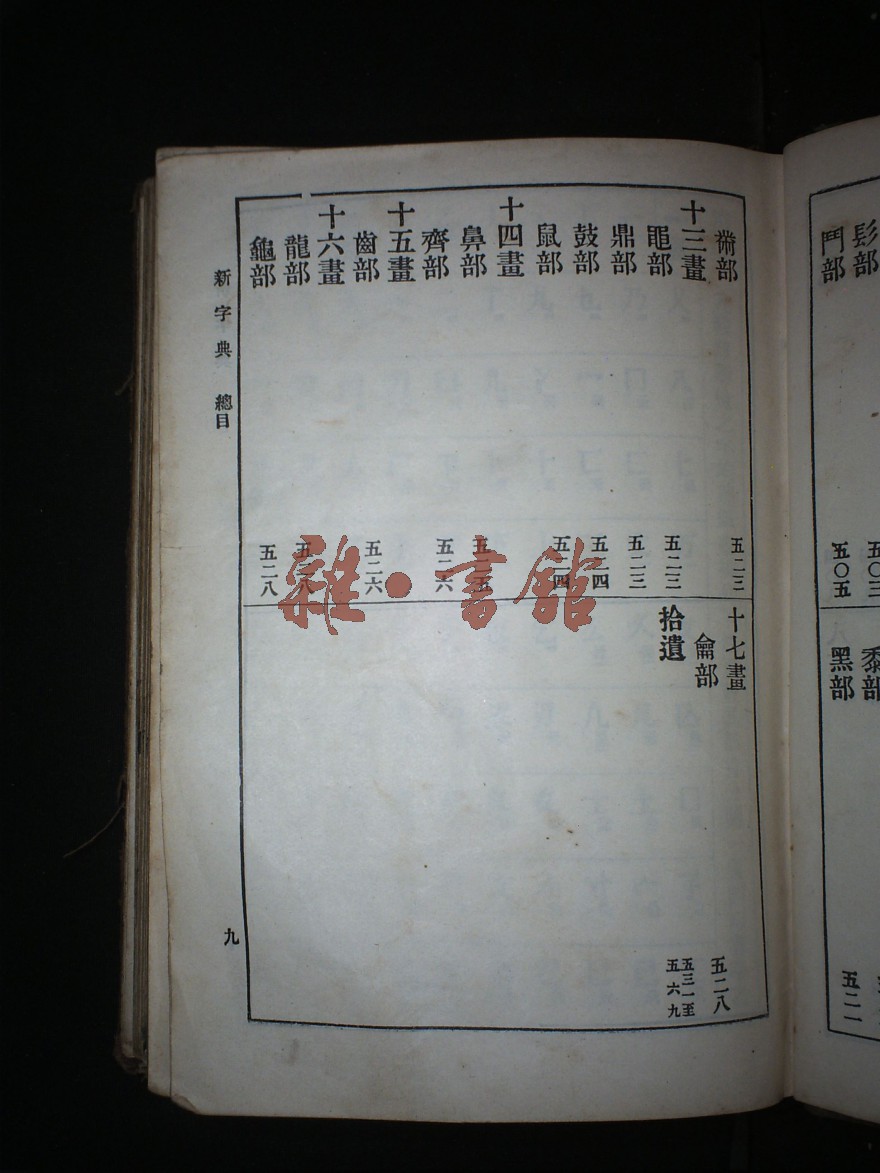 髟部 五〇三
鬥部 五〇五
黍部
黑部 五二一
黹部 五二三
十三畫
黽部 五二三
鼎部 五二三
鼓部 五二四
鼠部 五二四
十四畫
鼻部 五二五
齊部 五二六
十五畫
齒部 五二六
十六畫
龍部 五二八
龜部 五二八
十七畫
龠部 五二八
拾遺 五三一至
五六九
新字典 總目
九
雜·書館